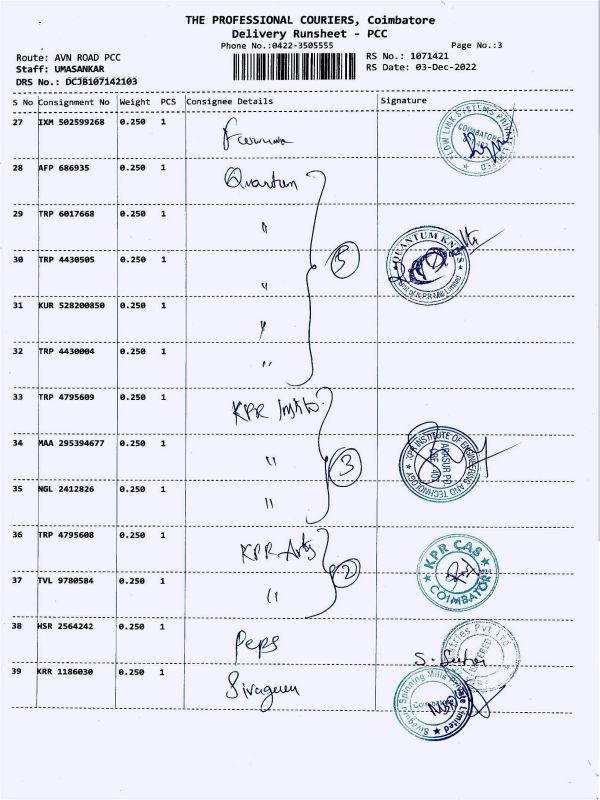 THE PROFESSIONAL COURIERS, Coimbatore
Delivery Runsheet - PCC
Phone No.:0422-3505555
Page No.:3
Route: AVN ROAD PCC
RS No.: 1071421
Staff: UMASANKAR
RS Date: 03-Dec-2022
DRS No.: DCJB107142103
S No Consignment No Weight PCS Consignee Details Signature
27 IXM 502599268 0.250 1
FLOW LINK SYSTEMS PRIVATE LIMITED
COIMBATORE
28 AFP 686935 0.250 1 Quantum
29 TRP 6017668 0.250 1 "
30 TRP 4430505 0.250 1 " 5
QUANTUM KNITS
31 KUR 528200850 0.250 1 "
32 TRP 4430004 0.250 1 "
33 TRP 4795609 0.250 1 KPR Instito
34 MAA 295394677 0.250 1 " 3
KPR INSTITUTE OF ENGINEERING AND TECHNOLOGY
35 NGL 2412826 0.250 1 "
36 TRP 4795608 0.250 1 KPR Arts
37 TVL 9780584 0.250 1 " 2
KPR CAS
COIMBATORE
38 HSR 2564242 0.250 1 Peps
39 KRR 1186030 0.250 1 Sivaguru
Sivaguru Spinning Mills Private Limited
Coimbatore